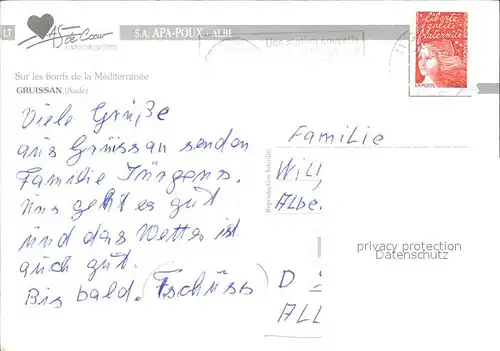 LT
AS de Cœur
S.A. APA-POUX - ALBI
liberté
égalité
fraternité
LA POSTE
Sur les bords de la Méditerranée
GRUISSAN (Aude)
Viele Grüße
aus Grüssan senden
Familie Jürgens.
Uns geht es gut
und das Wetter ist
auch gut.
Bis bald. (Tschüss)
Reproduction Interdite
Familie
Will
Albe
D
ALL
privacy protection
Datenschutz